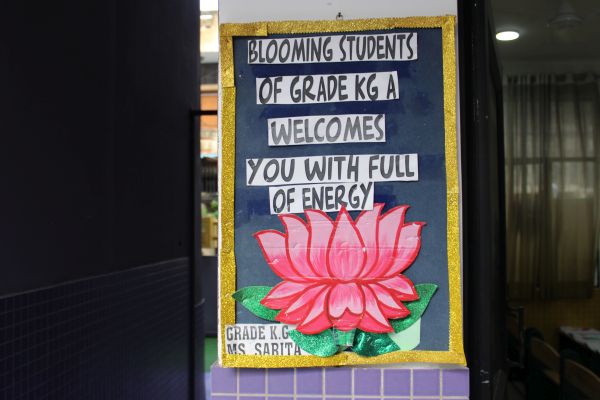 BLOOMING STUDENTS
OF GRADE KG A
WELCOMES
YOU WITH FULL
OF ENERGY
GRADE K.G
MS SARITA